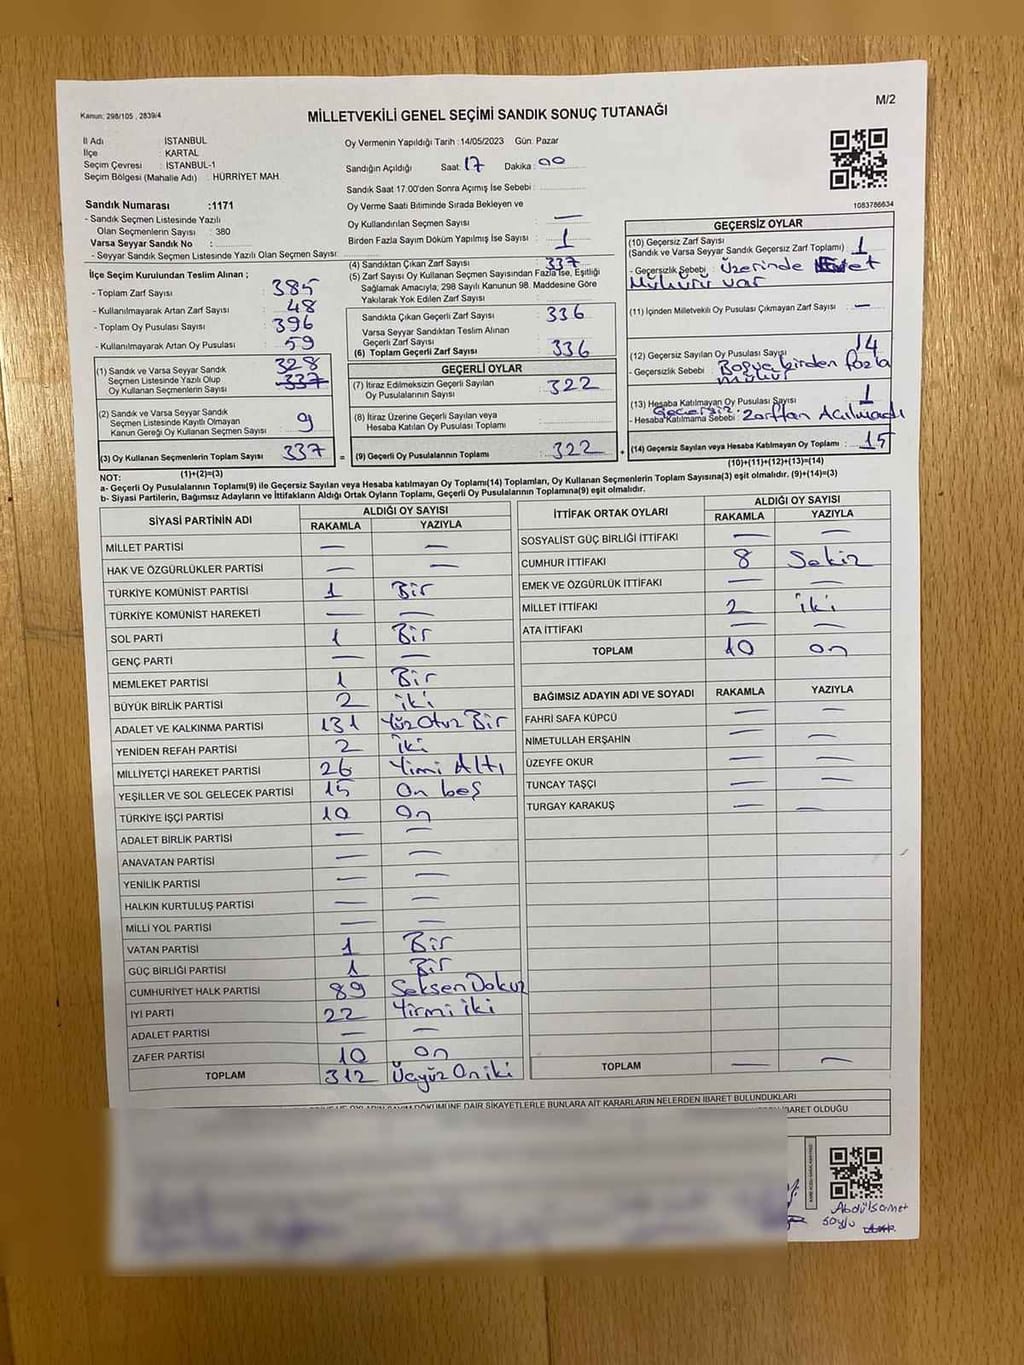 Kanun: 298/105 , 2839/4
MİLLETVEKİLİ GENEL SEÇİMİ SANDIK SONUÇ TUTANAĞI
M/2
İl Adı : İSTANBUL
İlçe : KARTAL
Seçim Çevresi : İSTANBUL-1
Seçim Bölgesi (Mahalle Adı) : HÜRRİYET MAH.
Oy Vermenin Yapıldığı Tarih :14/05/2023 Gün: Pazar
Sandığın Açıldığı Saat: 17 Dakika: 00
Sandık Saat 17:00'den Sonra Açımış İse Sebebi :
Sandık Numarası :1171
- Sandık Seçmen Listesinde Yazılı
Olan Seçmenlerin Sayısı : 380
Varsa Seyyar Sandık No :
- Seyyar Sandık Seçmen Listesinde Yazılı Olan Seçmen Sayısı:
Oy Verme Saati Bitiminde Sırada Bekleyen ve
Oy Kullandırılan Seçmen Sayısı : —
Birden Fazla Sayım Döküm Yapılmış İse Sayısı : 1
1083786634
İlçe Seçim Kurulundan Teslim Alınan ;
- Toplam Zarf Sayısı : 385
- Kullanılmayarak Artan Zarf Sayısı : 48
- Toplam Oy Pusulası Sayısı : 396
- Kullanılmayarak Artan Oy Pusulası : 59
(1) Sandık ve Varsa Seyyar Sandık 328
Seçmen Listesinde Yazılı Olup
Oy Kullanan Seçmenlerin Sayısı : 337
(2) Sandık ve Varsa Seyyar Sandık
Seçmen Listesinde Kayıtlı Olmayan
Kanun Gereği Oy Kullanan Seçmen Sayısı : 9
(3) Oy Kullanan Seçmenlerin Toplam Sayısı : 337
(1)+(2)=(3)
(4) Sandıktan Çıkan Zarf Sayısı : 337
(5) Zarf Sayısı Oy Kullanan Seçmen Sayısından Fazla İse, Eşitliği
Sağlamak Amacıyla; 298 Sayılı Kanunun 98. Maddesine Göre
Yakılarak Yok Edilen Zarf Sayısı :
Sandıkta Çıkan Geçerli Zarf Sayısı : 336
Varsa Seyyar Sandıktan Teslim Alınan
Geçerli Zarf Sayısı :
(6) Toplam Geçerli Zarf Sayısı : 336
GEÇERLİ OYLAR
(7) İtiraz Edilmeksizin Geçerli Sayılan
Oy Pusulalarının Sayısı : 322
(8) İtiraz Üzerine Geçerli Sayılan veya
Hesaba Katılan Oy Pusulası Toplamı :
= (9) Geçerli Oy Pusulalarının Toplamı : 322
GEÇERSİZ OYLAR
(10) Geçersiz Zarf Sayısı
(Sandık ve Varsa Seyyar Sandık Geçersiz Zarf Toplamı) : 1
- Geçersizlik Sebebi : Üzerinde Evet
Mührü var
(11) İçinden Milletvekili Oy Pusulası Çıkmayan Zarf Sayısı : —
(12) Geçersiz Sayılan Oy Pusulası Sayısı : 14
- Geçersizlik Sebebi : birden fazla
mühür
(13) Hesaba Katılmayan Oy Pusulası Sayısı : 1
- Hesaba Katılmama Sebebi : Geçersiz Zarftan Açılmadı
+ (14) Geçersiz Sayılan veya Hesaba Katılmayan Oy Toplamı : 15
(10)+(11)+(12)+(13)=(14)
NOT:
a- Geçerli Oy Pusulalarının Toplamı(9) ile Geçersiz Sayılan veya Hesaba katılmayan Oy Toplamı(14) Toplamları, Oy Kullanan Seçmenlerin Toplam Sayısına(3) eşit olmalıdır. (9)+(14)=(3)
b- Siyasi Partilerin, Bağımsız Adayların ve İttifakların Aldığı Ortak Oyların Toplamı, Geçerli Oy Pusulalarının Toplamına(9) eşit olmalıdır.
SİYASİ PARTİNİN ADI ALDIĞI OY SAYISI
RAKAMLA YAZIYLA
MİLLET PARTİSİ — —
HAK VE ÖZGÜRLÜKLER PARTİSİ — —
TÜRKİYE KOMÜNİST PARTİSİ 1 Bir
TÜRKİYE KOMÜNİST HAREKETİ — —
SOL PARTİ 1 Bir
GENÇ PARTİ — —
MEMLEKET PARTİSİ 1 Bir
BÜYÜK BİRLİK PARTİSİ 2 iki
ADALET VE KALKINMA PARTİSİ 131 Yüz Otuz Bir
YENİDEN REFAH PARTİSİ 2 İki
MİLLİYETÇİ HAREKET PARTİSİ 26 Yimi Altı
YEŞİLLER VE SOL GELECEK PARTİSİ 15 On beş
TÜRKİYE İŞÇİ PARTİSİ 10 On
ADALET BİRLİK PARTİSİ — —
ANAVATAN PARTİSİ — —
YENİLİK PARTİSİ — —
HALKIN KURTULUŞ PARTİSİ — —
MİLLİ YOL PARTİSİ — —
VATAN PARTİSİ 1 Bir
GÜÇ BİRLİĞİ PARTİSİ 1 Bir
CUMHURİYET HALK PARTİSİ 89 Seksen Dokuz
İYİ PARTİ 22 Yirmi iki
ADALET PARTİSİ — —
ZAFER PARTİSİ 10 On
TOPLAM 312 Üçyüz On iki
İTTİFAK ORTAK OYLARI ALDIĞI OY SAYISI
RAKAMLA YAZIYLA
SOSYALİST GÜÇ BİRLİĞİ İTTİFAKI — —
CUMHUR İTTİFAKI 8 Sekiz
EMEK VE ÖZGÜRLÜK İTTİFAKI — —
MİLLET İTTİFAKI 2 İki
ATA İTTİFAKI — —
TOPLAM 10 On
BAĞIMSIZ ADAYIN ADI VE SOYADI RAKAMLA YAZIYLA
FAHRİ SAFA KÜPCÜ — —
NİMETULLAH ERŞAHİN — —
ÜZEYFE OKUR — —
TUNCAY TAŞÇI — —
TURGAY KARAKUŞ — —
TOPLAM — —
DÖKÜMÜNE DAİR ŞİKAYETLERLE BUNLARA AİT KARARLARIN NELERDEN İBARET BULUNDUKLARI
İBARET OLDUĞU
Abdülsamet
Soylu